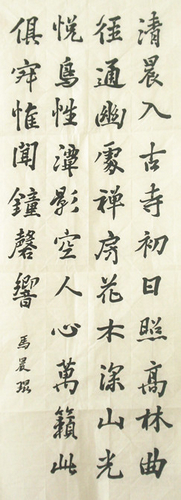 清晨入古寺初日照高林曲
徑通幽處禅房花木深山光
悦鳥性潭影空人心萬籟此
俱寂惟聞鐘磬響
馬晨琨